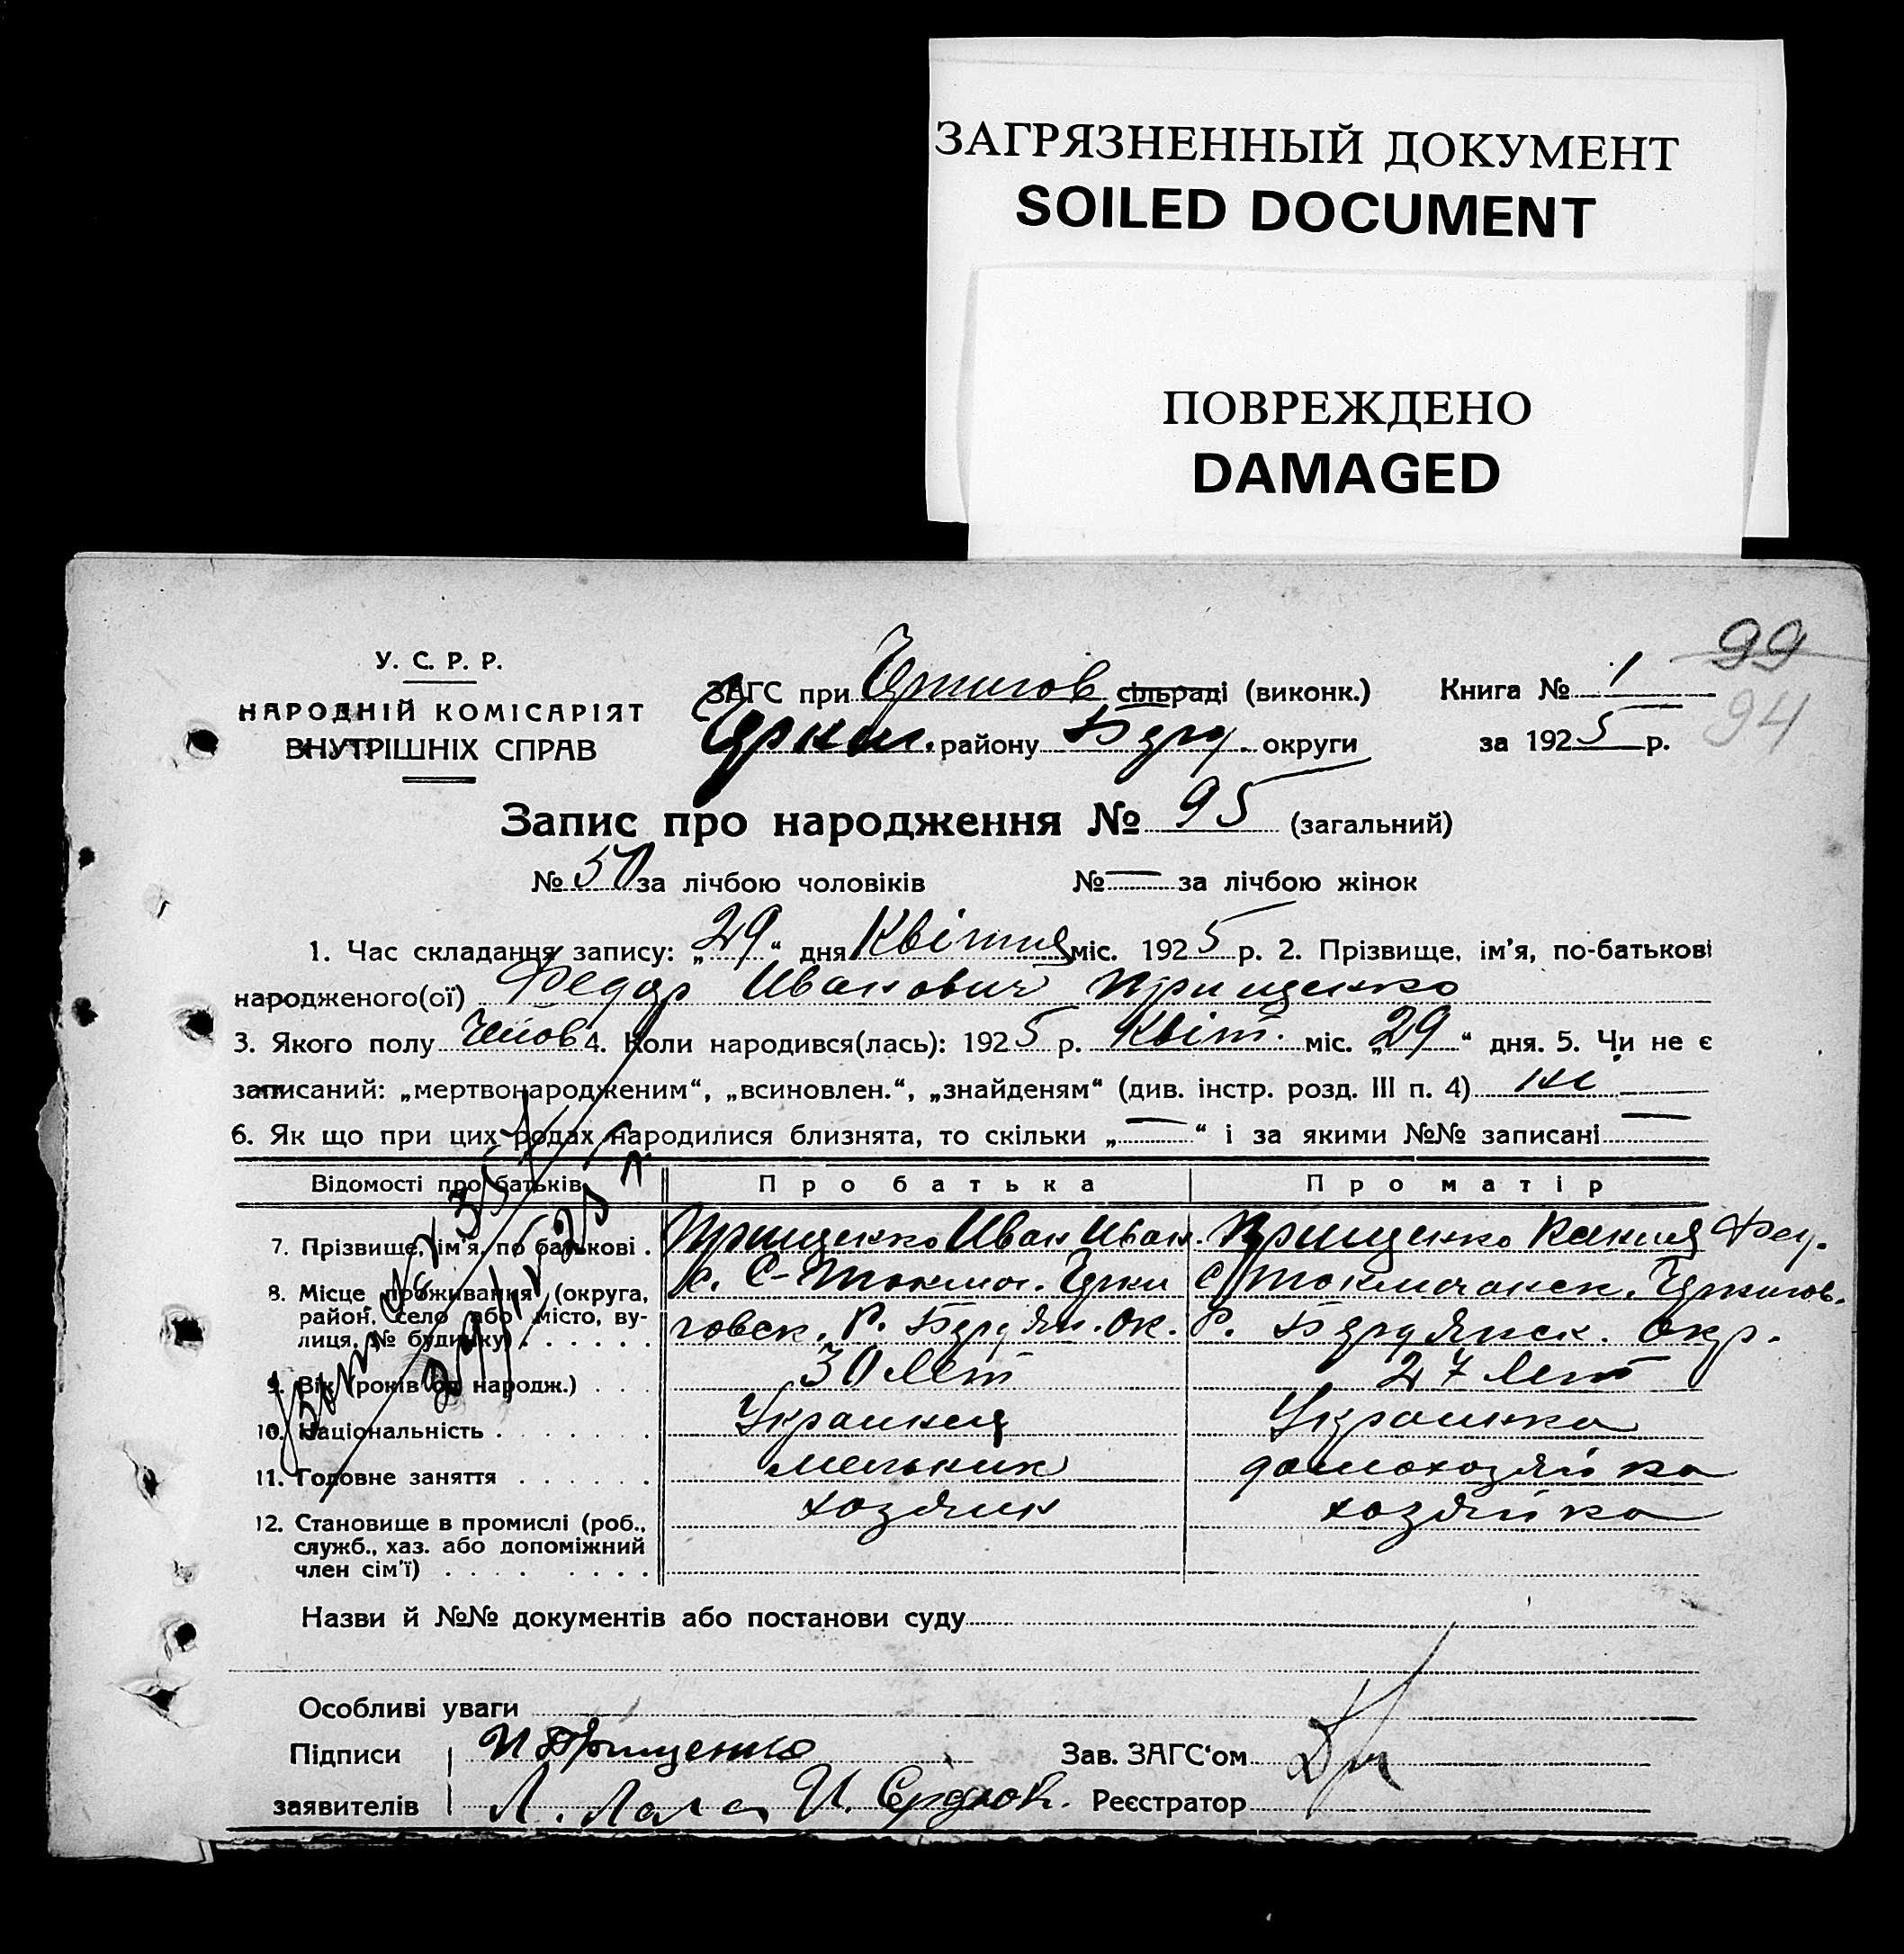 ЗАГРЯЗНЕННЫЙ ДОКУМЕНТ
SOILED DOCUMENT
ПОВРЕЖДЕНО
DAMAGED
99
94
У. С. Р. Р.
НАРОДНІЙ КОМІСАРІЯТ
ВНУТРІШНІХ СПРАВ
ЗАГС при Чернигов сільраді (виконк.) Книга № 1
району Берд. округи за 1925 р.
Запис про народження № 95 (загальний)
№ 50 за лічбою чоловіків № — за лічбою жінок
1. Час складання запису: „29“ дня Квітня міс. 1925 р. 2. Прізвище, ім'я, по-батькові
народженого(ої) Федор Иванович Прищенко
3. Якого полу Чолов 4. Коли народився(лась): 1925 р. Квіт. міс. „29“ дня. 5. Чи не є
записаний: „мертвонародженим“, „всиновлен.“, „знайденям“ (див. інстр. розд. III п. 4) ні —
6. Як що при цих родах народилися близнята, то скільки „—“ і за якими №№ записані —
Відомості про батьків Про батька Про матір
7. Прізвище, ім'я, по батькові . Прищенко Иван Иван. Прищенко Ксения Фед.
8. Місце проживання (округа, район, село або місто, вулиця, № будинку) с. С-Токмач. Черни
говск. Р. Бердян. Ок. С Токмачанск. Чернигов.
Р. Бердянск. Окр.
9. Вік (років од народж.) . . . 30 лет 27 лет
10. Національність . . . . . . . Украинец Украинка
11. Головне заняття . . . . . . мельник домохозяйка
12. Становище в промислі (роб., хозяин хозяйка
служб., хаз. або допоміжний
член сім'ї) . . . . . . . .
Назви й №№ документів або постанови суду
Особливі уваги
Підписи И Прищенко Зав. ЗАГС'ом
заявителів Л. Лала И. Сердюк. Реєстратор